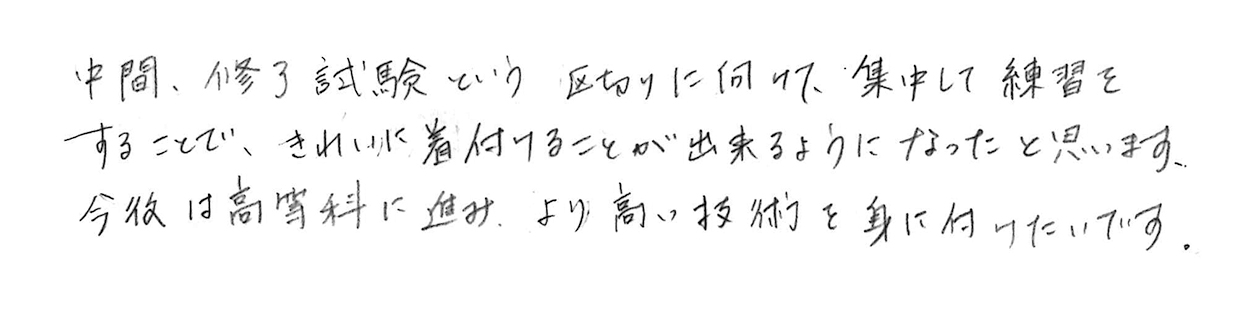 中間、修了試験という区切りに向けて、集中して練習を
することで、きれいに着付けることが出来るようになったと思います。
今後は高等科に進み、より高い技術を身に付けたいです。